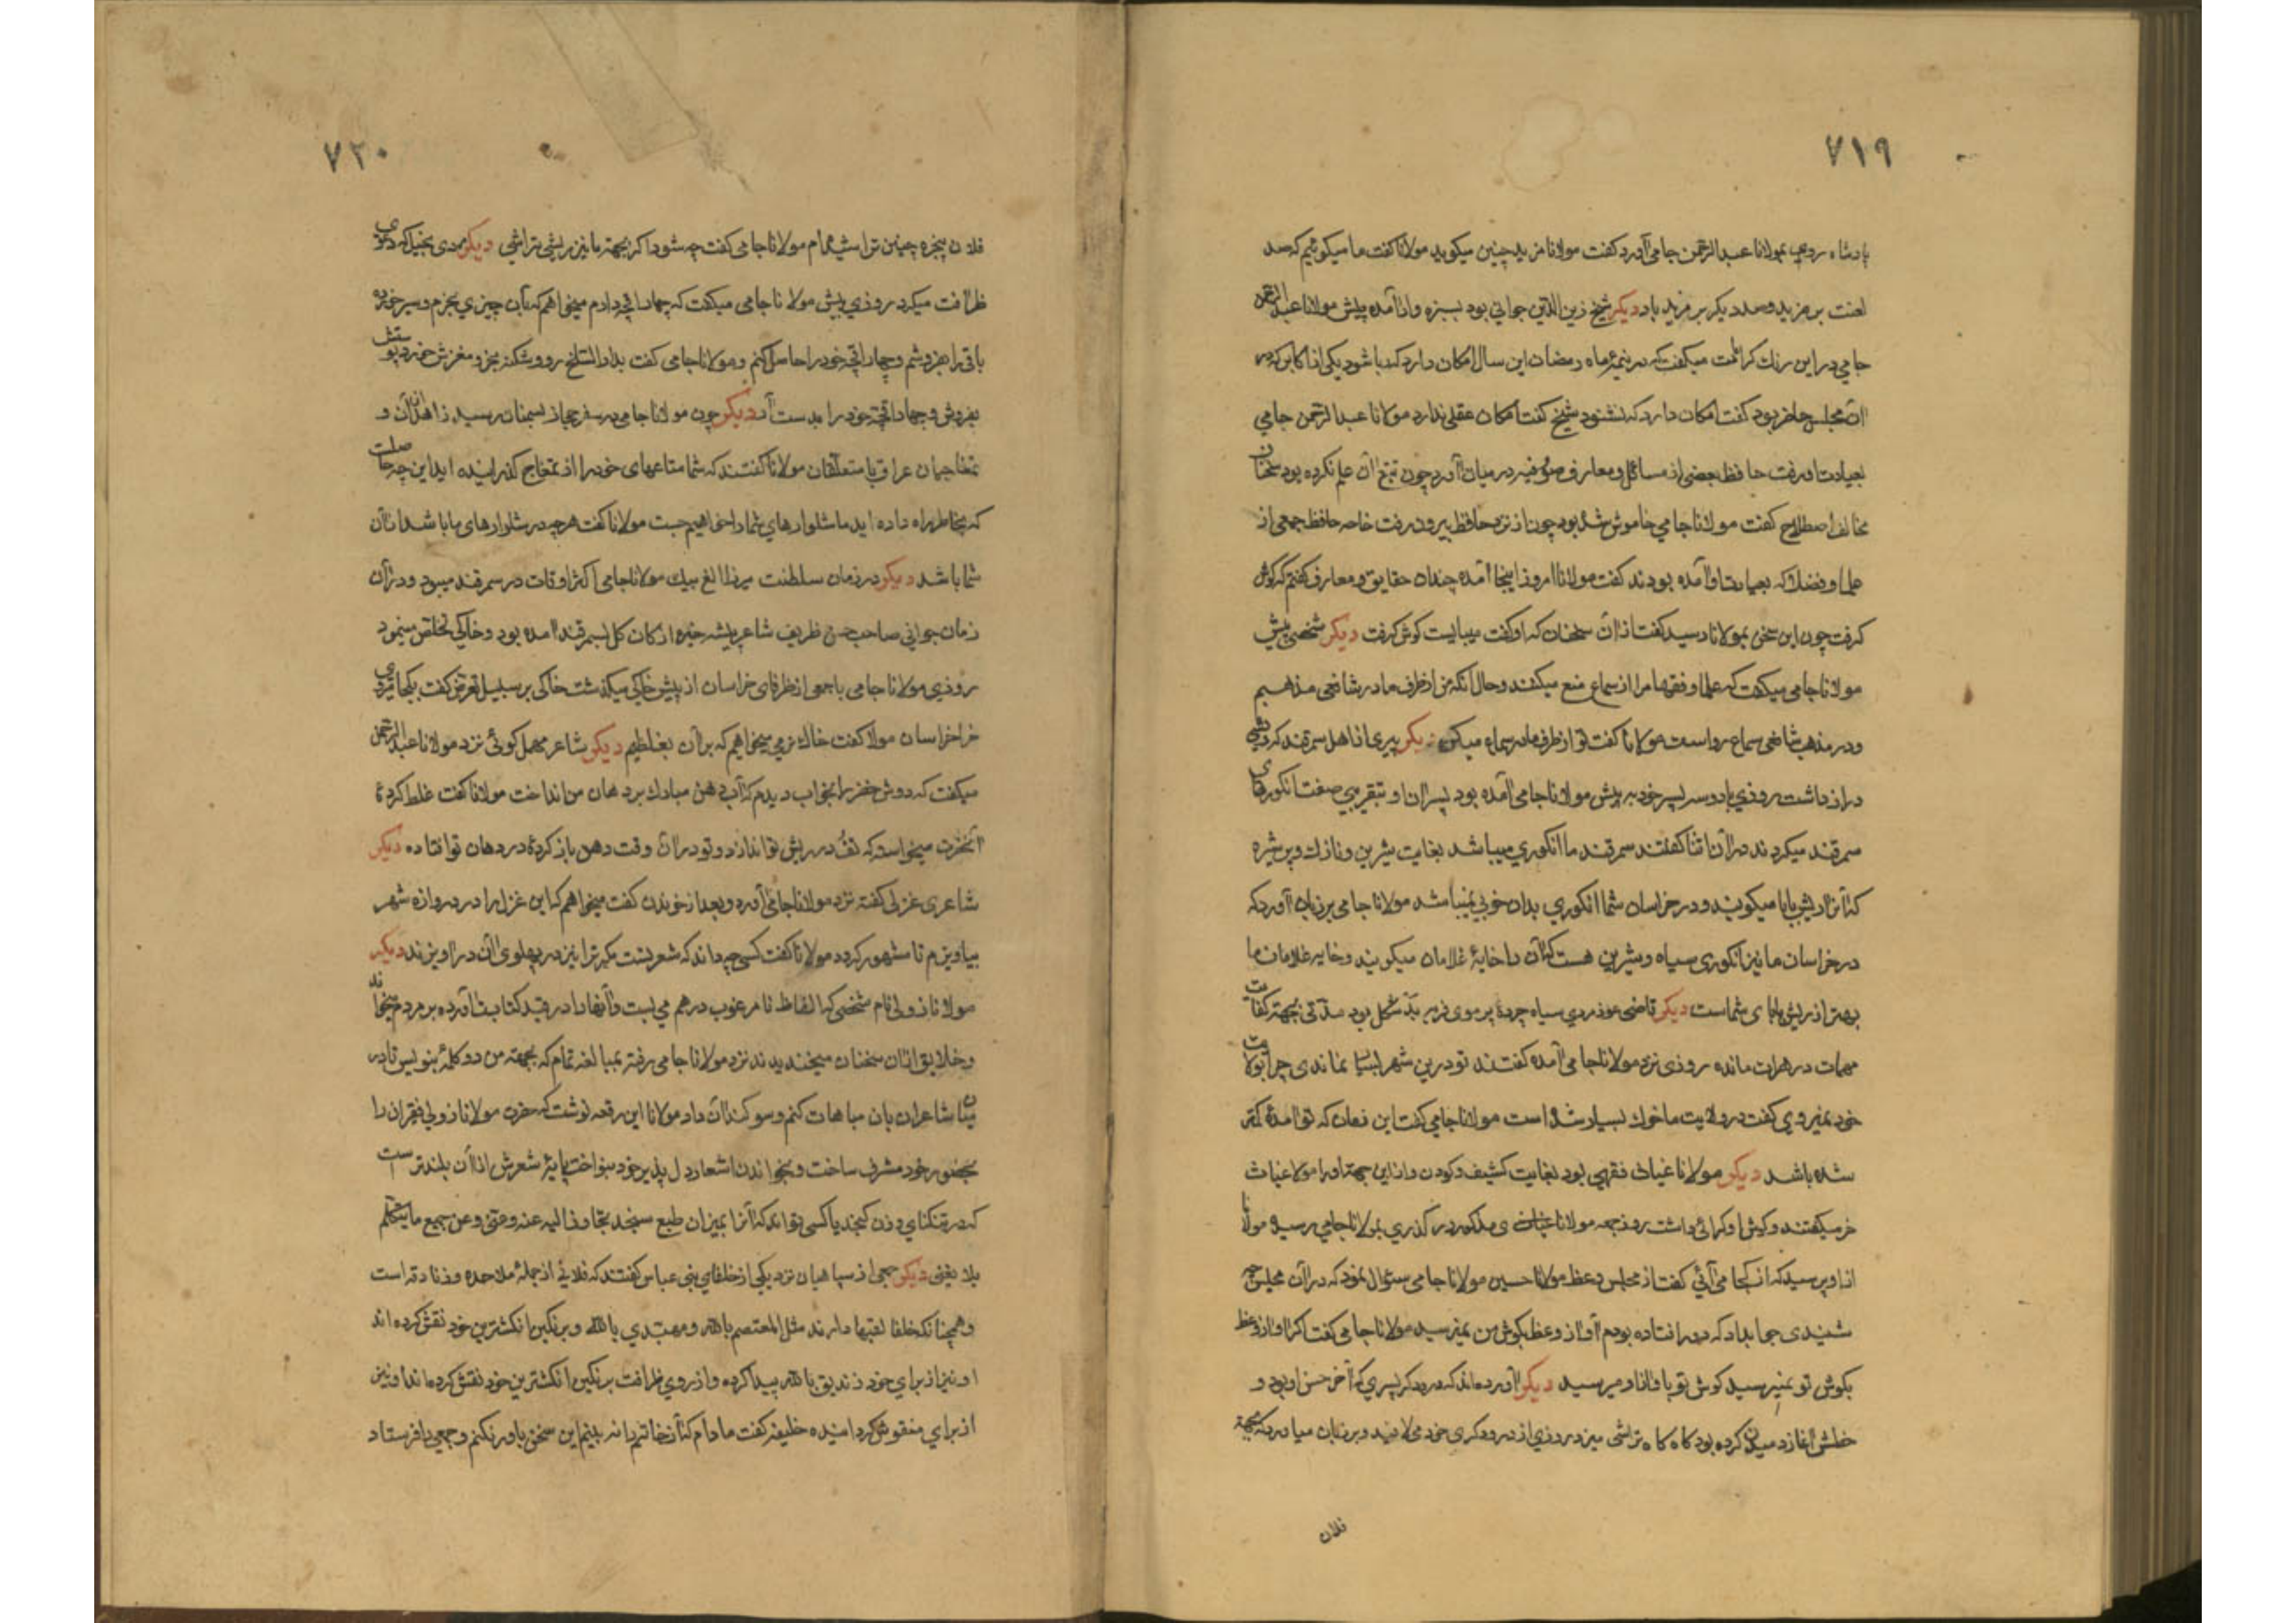 ۷۱۹
پادشاه روی بمولانا عبدالرحمن جامی آورد گفت مولانا مزید چنین میگوید مولانا گفت ما میگوئیم که صد
لعنت بر مزید و صد دیگر بر مزید باد دیگر شیخ زین الدین جوانی بود سبزه وار آمده پیش مولانا عبد الرحمن
جامی در این میگفت که در نیمهٔ ماه رمضان این سال امکان دارد که باشود یکی از اکابر که در
آن مجلس حاضر بود گفت امکان دارد که نشود شیخ گفت امکان عقلی ندارد مولانا عبدالرحمن جامی
بعیادت او رفت حافظ بعضی از مسائل و معارف صوفیه در میان آورد چون تتبع آن علم نکرده بود سخنان
مخالف اصطلاح گفت مولانا جامی خاموش شده بود چون از نزد حافظ بیرون رفت خاصه حافظ جمعی از
علما و فضلا که بعیادت او آمده بودند گفت مولانا امروز اینجا آمده چندان حقایق و معارف گفتم که گوش
گرفت چون این سخن بمولانا رسید گفت از آن سخنان که او گفت میبایست گوش گرفت دیگر شخصی پیش
مولانا جامی میگفت که علما و فقها مرا از سماع منع میکنند و حال آنکه من از طرف مادر شافعی مذهبم
و در مذهب شافعی سماع رواست مولانا گفت تو از طرف مادر سماع میکن دیگر پیری از اهل سمرقند که ریشی
دراز داشت روزی با دو سه پسر خود به پیش مولانا جامی آمده بود پسران او بتقریبی صفت انگورهای
سمرقند میکردند در آن اثنا گفتند سمرقند ما انگوری میباشد بغایت شیرین و نازک و پر شیره
که آنرا ریش بابا میگویند و در خراسان شما انگوری بدان خوبی نمیباشد مولانا جامی بر زبان آورد که
در خراسان ما نیز انگوری سیاه و شیرین هست که آن را خایهٔ غلامان میگویند و خایه غلامان ما
بهتر از ریش بابای شماست دیگر قاضی مردی سیاه چرده پر موی فربه بد شکل بود مدتی بجهت کفایت
مهمات در هرات مانده روزی نزد مولانا جامی آمده گفتند تو درین شهر بسیار بماندی چرا بولایت
خود نمیروی گفت در ولایت ما خوک بسیار شده است مولانا جامی گفت این زمان که تو آمدهٔ کمتر
شده باشد دیگر مولانا غیاث فقیهی بود بغایت کثیف و کودن و از این جهت او را مولانا غیاث
خر میگفتند و گوش او گرائی داشت روز جمعه مولانا غیاث مذکور در گذری بمولانا جامی رسید مولانا
از او پرسید که از کجا می آئی گفت از مجلس وعظ مولانا حسین مولانا جامی سئوال نمود که در آن مجلس چه
شنیدی جواب داد که دور افتاده بودم آواز وعظ بگوش من نمیرسید مولانا جامی گفت اگر آواز وعظ
بگوش تو نمیرسید گوش تو باواز او میرسید دیگر آورده اند که درودگر پسری که آخر حسن او بود و
خطش آغاز دمیدن کرده بود گاه گاه تراشی میزد روزی از درودگری خود می لافید و بر زبان میاورد که بجهت
فلان
۷۲۰
فلان پنجره چنین تراشیده ام مولانا جامی گفت چه شود اگر بجهت ما نیز ریشی بتراشی دیگر مردی بخیل که دعوی
ظرافت میکرد روزی پیش مولانا جامی میگفت که چهار اقچه دارم میخواهم که بآن چیزی بخرم و سیر خورده
باقی را بفروشم و چهار اقچه خود را حاصل کنم مولانا جامی گفت بدار السلخ رو و شکنبه بخر و مغزش خورده پوستش
بفروش و چهار اقچه خود را بدست آر دیگر چون مولانا جامی در سفر حجاز بسمنان رسید
تمغاجیان عراق با متعلقان مولانا گفتند که شما متاعهای خود را از تمغاج گذرانیده اید این چه حالت
که بخاطر راه داده اید ما شلوارهای شما را خواهیم جست مولانا گفت هر چه در شلوارهای ما باشد از آن
شما باشد دیگر در زمان سلطنت میرزا الغ بیک مولانا جامی اکثر اوقات در سمرقند میبود و در آن
زمان جوانی صاحب حسن ظریف شاعر پیشه بسمرقند آمده بود و خاکی تخلص مینمود
روزی مولانا جامی با جمعی از ظرفای خراسان از پیش خاکی میگذشت خاکی بر سبیل تعرض گفت بکجا میروید
خر خراسان مولانا گفت خاک نرمی میخواهیم که بر آن بغلطیم دیگر شاعر مهمل گوئی نزد مولانا عبد الرحمن
میگفت که دوش خضر را بخواب دیدم که آب دهن مبارک بر دهان من انداخت مولانا گفت غلط کردهٔ
آنحضرت میخواسته که تف در ریش تو اندازد و تو در آن وقت دهن باز کردهٔ در دهان تو افتاده دیگر
شاعری غزلی گفته نزد مولانا جامی آورد و بعد از خوندن گفت میخواهم که این غزل را در دروازه شهر
بیاویزم تا مشهور گردد مولانا گفت کسی چه داند که شعر تست مگر ترا نیز در پهلوی آن در آویزند دیگر
مولانا زولی نام شخصی که الفاظ نامرغوب در هم می بست و آنها را در قید کتابت آورده بر مردم میخواند
و خلایق از آن سخنان میخندیدند نزد مولانا جامی رفته بمبالغه تمام که بجهت من دو کلمهٔ بنویس تا در
میان شاعران بآن مباهات کنم و سوگندان داد مولانا این رقعه نوشت که حضرت مولانا زولی فقیران را
بحضور خود مشرف ساخت و بخواندن اشعار دل پذیر خود بنواخت پایهٔ شعرش از آن بلندتر است
که در تنگنای وزن گنجد یا کسی تواند که آنرا بمیزان طبع سنجد تجاوز الله عنه و عنی و عن جمیع ما یتکلم
بلا یعنی دیگر جمعی از سپاهیان نزد یکی از خلفای بنی عباس گفتند که فلانی از جملهٔ ملاحده و زنادقه است
و همچنانکه خلفا لقبها دارند مثل المعتصم بالله و مهتدی بالله و بر نگین انگشترین خود نقش کرده اند
او نیز از برای خود زندیق بالله پیدا کرده و از روی ظرافت بر نگین انگشترین خود نقش کرده
از برای منقوش گردانیده خلیفه گفت مادام که آن خاتم را نه بینم این سخن باور نکنم و جمعی را فرستاد